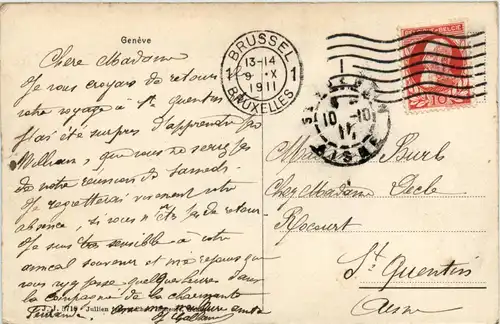 Genève
Chère Madame
Je vous croyais de retour
votre voyage à St Quentin
J'ai été surpris d'apprendre par
William, que vous ne serez
de notre réunion de samedi.
Je regretterai vivement votre
absence, si vous n'êtes pas de retour
Je suis sensible à votre
amical souvenir et me réjouis que
vous ayez passé quelques heures dans
la compagnie de la charmante
J.J. 3710 - Jullien
BRUSSEL
1 13-14 1
9 X
1911
BRUXELLES
BELGIE
10
10 -10
11
AISNE
Madame Burb
Chez Madame Decle
Rocourt
St Quentin
Aisne